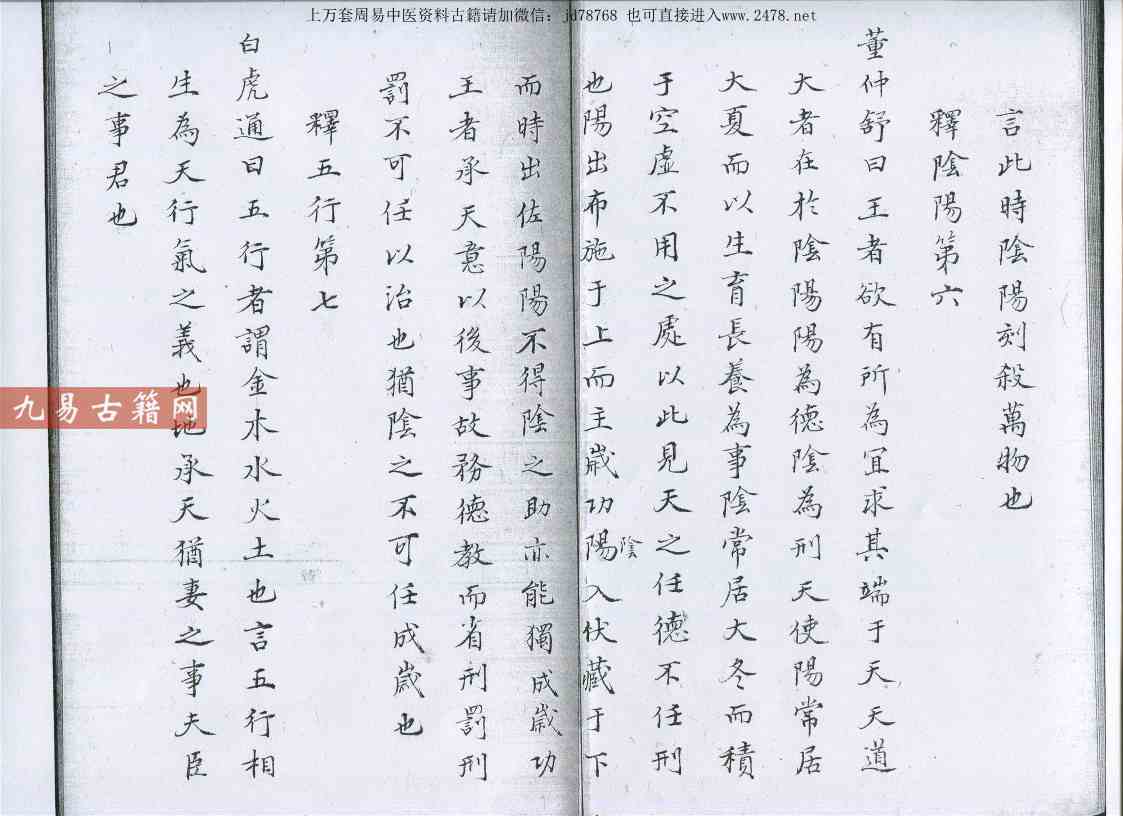 上万套周易中医资料古籍请加微信：jd78768 也可直接进入www.2478.net
言此時陰陽刻殺萬物也
釋陰陽第六
董仲舒曰王者欲有所為冝求其端于天天道
大者在於陰陽陽為德陰為刑天使陽常居
大夏而以生育長養為事陰常居大冬而積
于空虛不用之處以此見天之任德不任刑
也陽出布施于上而主歲功陽入伏藏于下
陰
而時出佐陽陽不得陰之助亦能獨成歲功
王者承天意以後事故務德教而省刑罰刑
罰不可任以治也猶陰之不可任成歲也
釋五行第七
白虎通曰五行者謂金木水火土也言五行相
生為天行氣之義也地承天猶妻之事夫臣
之事君也
九易古籍网